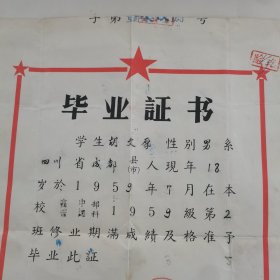 字第 号
毕业証书
学生胡文 性别男系
四川省成都县(市)人现年18
岁於1959年7月在本
校 1959級第2
班修业期满成績及格准予
毕业此証